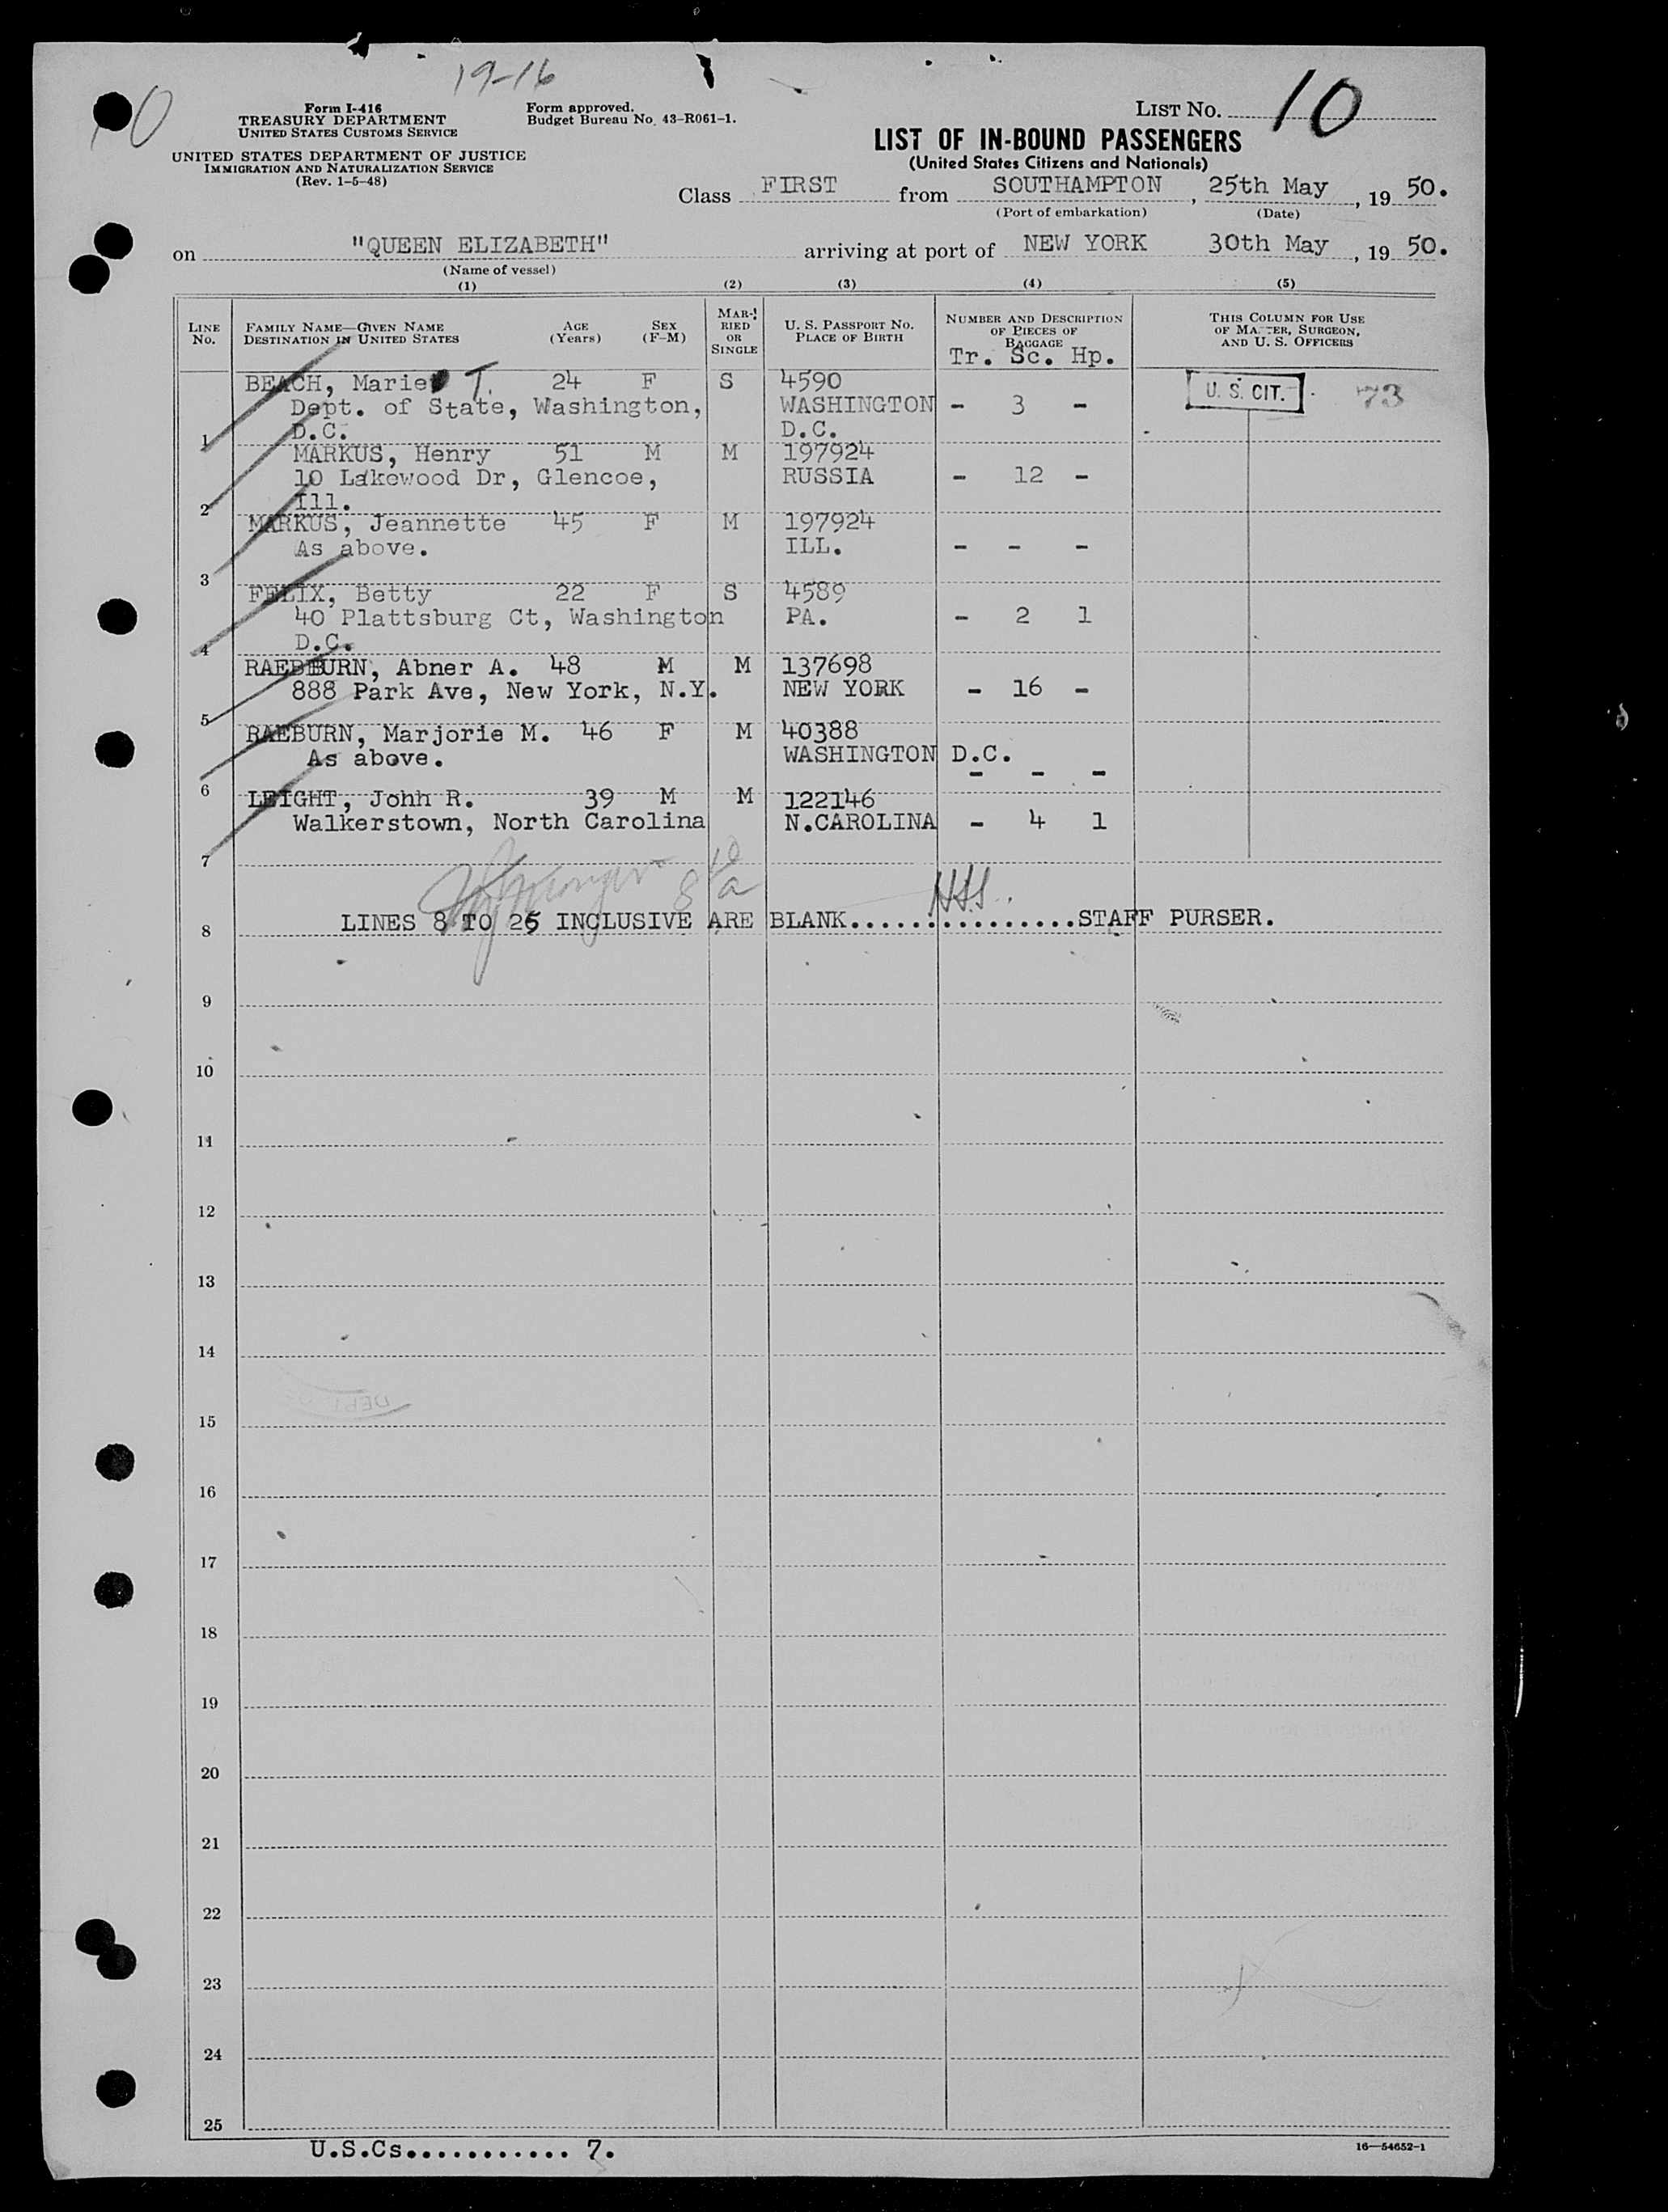 19-16
10
Form I-416
TREASURY DEPARTMENT
UNITED STATES CUSTOMS SERVICE
UNITED STATES DEPARTMENT OF JUSTICE
IMMIGRATION AND NATURALIZATION SERVICE
(Rev. 1-5-48)
Form approved.
Budget Bureau No. 43-R061-1.
LIST NO. 10
LIST OF IN-BOUND PASSENGERS
(United States Citizens and Nationals)
Class FIRST from SOUTHAMPTON, 25th May, 19 50.
(Port of embarkation) (Date)
on "QUEEN ELIZABETH" arriving at port of NEW YORK 30th May, 19 50.
(Name of vessel)
(1) (2) (3) (4) (5)
LINE NO. FAMILY NAME—GIVEN NAME DESTINATION IN UNITED STATES AGE (Years) SEX (F-M) MARRIED OR SINGLE U. S. PASSPORT NO. PLACE OF BIRTH NUMBER AND DESCRIPTION OF PIECES OF BAGGAGE THIS COLUMN FOR USE OF MASTER, SURGEON, AND U. S. OFFICERS
Tr. Sc. Hp.
BEACH, Marie T. 24 F S 4590 U. S. CIT. 73
Dept. of State, Washington, WASHINGTON - 3 -
1 D.C. D.C.
MARKUS, Henry 51 M M 197924
10 Lakewood Dr, Glencoe, RUSSIA - 12 -
2 Ill.
MARKUS, Jeannette 45 F M 197924
As above. ILL. - - -
3
FELIX, Betty 22 F S 4589
40 Plattsburg Ct, Washington PA. - 2 1
4 D.C.
RAEBURN, Abner A. 48 M M 137698
888 Park Ave, New York, N.Y. NEW YORK - 16 -
5
RAEBURN, Marjorie M. 46 F M 40388
As above. WASHINGTON D.C.
- - -
6
LEIGHT, John R. 39 M M 122146
Walkerstown, North Carolina N.CAROLINA - 4 1
7
LINES 8 TO 25 INCLUSIVE ARE BLANK...............STAFF PURSER.
8
9
10
11
12
13
14
15
16
17
18
19
20
21
22
23
24
25
U.S.Cs........... 7.
16—54652-1